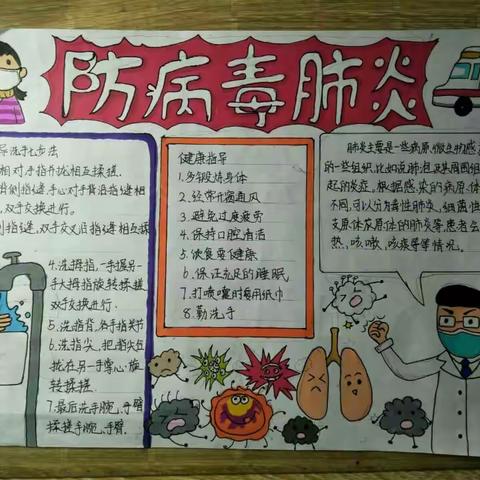 防病毒肺炎
洗手七步法
相对手指并拢相互揉搓.
手心对手背沿指缝相
双手交换进行.
指缝,双手交叉沿指缝相互揉
4.洗拇指,一手握另一
手大拇指旋转揉搓
双手交换进行.
5.洗指背,各手指关节
6.洗指尖,把指尖合
拢在另一手掌心,旋
转揉搓.
7.最后洗手腕,手臂
揉搓手腕、手臂.
健康指导
1.多锻炼身体
2.经常开窗通风
3.避免过度疲劳
4.保持口腔清洁
5.饮食要健康
6.保证充足的睡眠
7.打喷嚏时要用纸巾
8.勤洗手
肺炎主要是一些病原,微生物感
的一些组织,比如说肺泡及其周围组
起的炎症。根据感染的病原体
不同,可以分为毒性肺炎、细菌性
支原体衣原体的肺炎等,患者会
热,咳嗽,咳痰等情况。